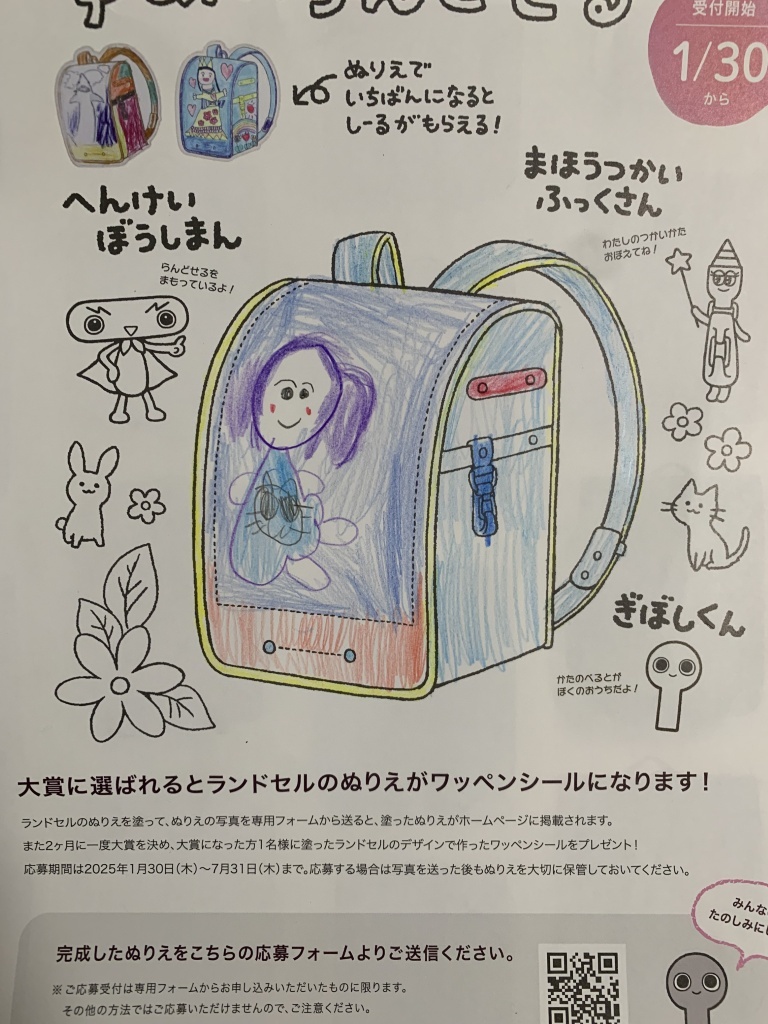 らんどせる
受付開始
1/30
から
ぬりえで
いちばんになると
しーるがもらえる！
へんけい
ぼうしまん
らんどせるを
まもっているよ！
まほうつかい
ふっくさん
わたしのつかいかた
おぼえてね！
ぎぼしくん
かたのべるとが
ぼくのおうちだよ！
大賞に選ばれるとランドセルのぬりえがワッペンシールになります！
ランドセルのぬりえを塗って、ぬりえの写真を専用フォームから送ると、塗ったぬりえがホームページに掲載されます。
また2ヶ月に一度大賞を決め、大賞になった方1名様に塗ったランドセルのデザインで作ったワッペンシールをプレゼント！
応募期間は2025年1月30日(木)〜7月31日(木)まで。応募する場合は写真を送った後もぬりえを大切に保管しておいてください。
完成したぬりえをこちらの応募フォームよりご送信ください。
※ご応募受付は専用フォームからお申し込みいただいたものに限ります。
その他の方法ではご応募いただけませんので、ご注意ください。
みんな
たのしみに